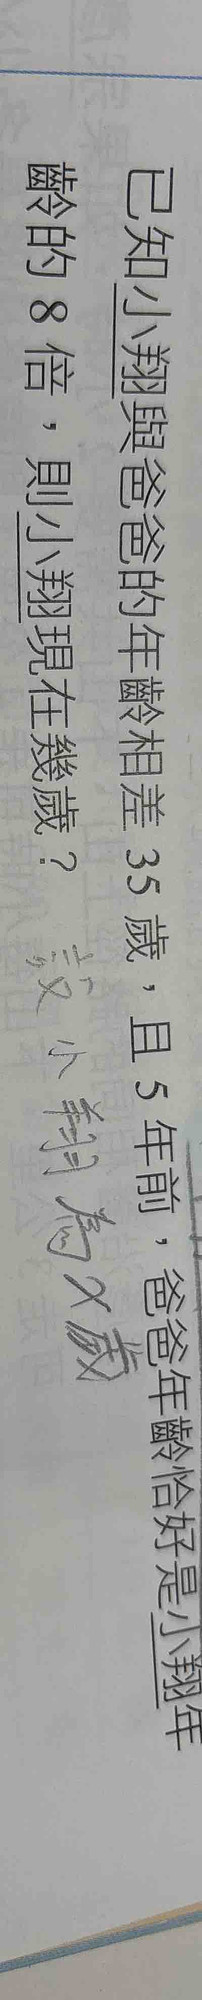 已知小翔與爸爸的年齡相差 35 歲，且 5 年前，爸爸年齡恰好是小翔年
齡的 8 倍，則小翔現在幾歲？ 設小翔為 x 歲